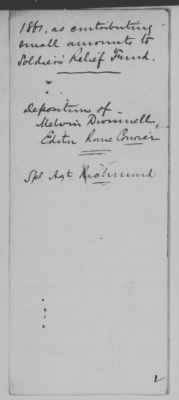 1861, as contributing
small amounts to
Soldiers Relief Fund.
Deposition of
Melvin Dwinnell,
Editor Rome Courier
Spl Agt Richmond
2